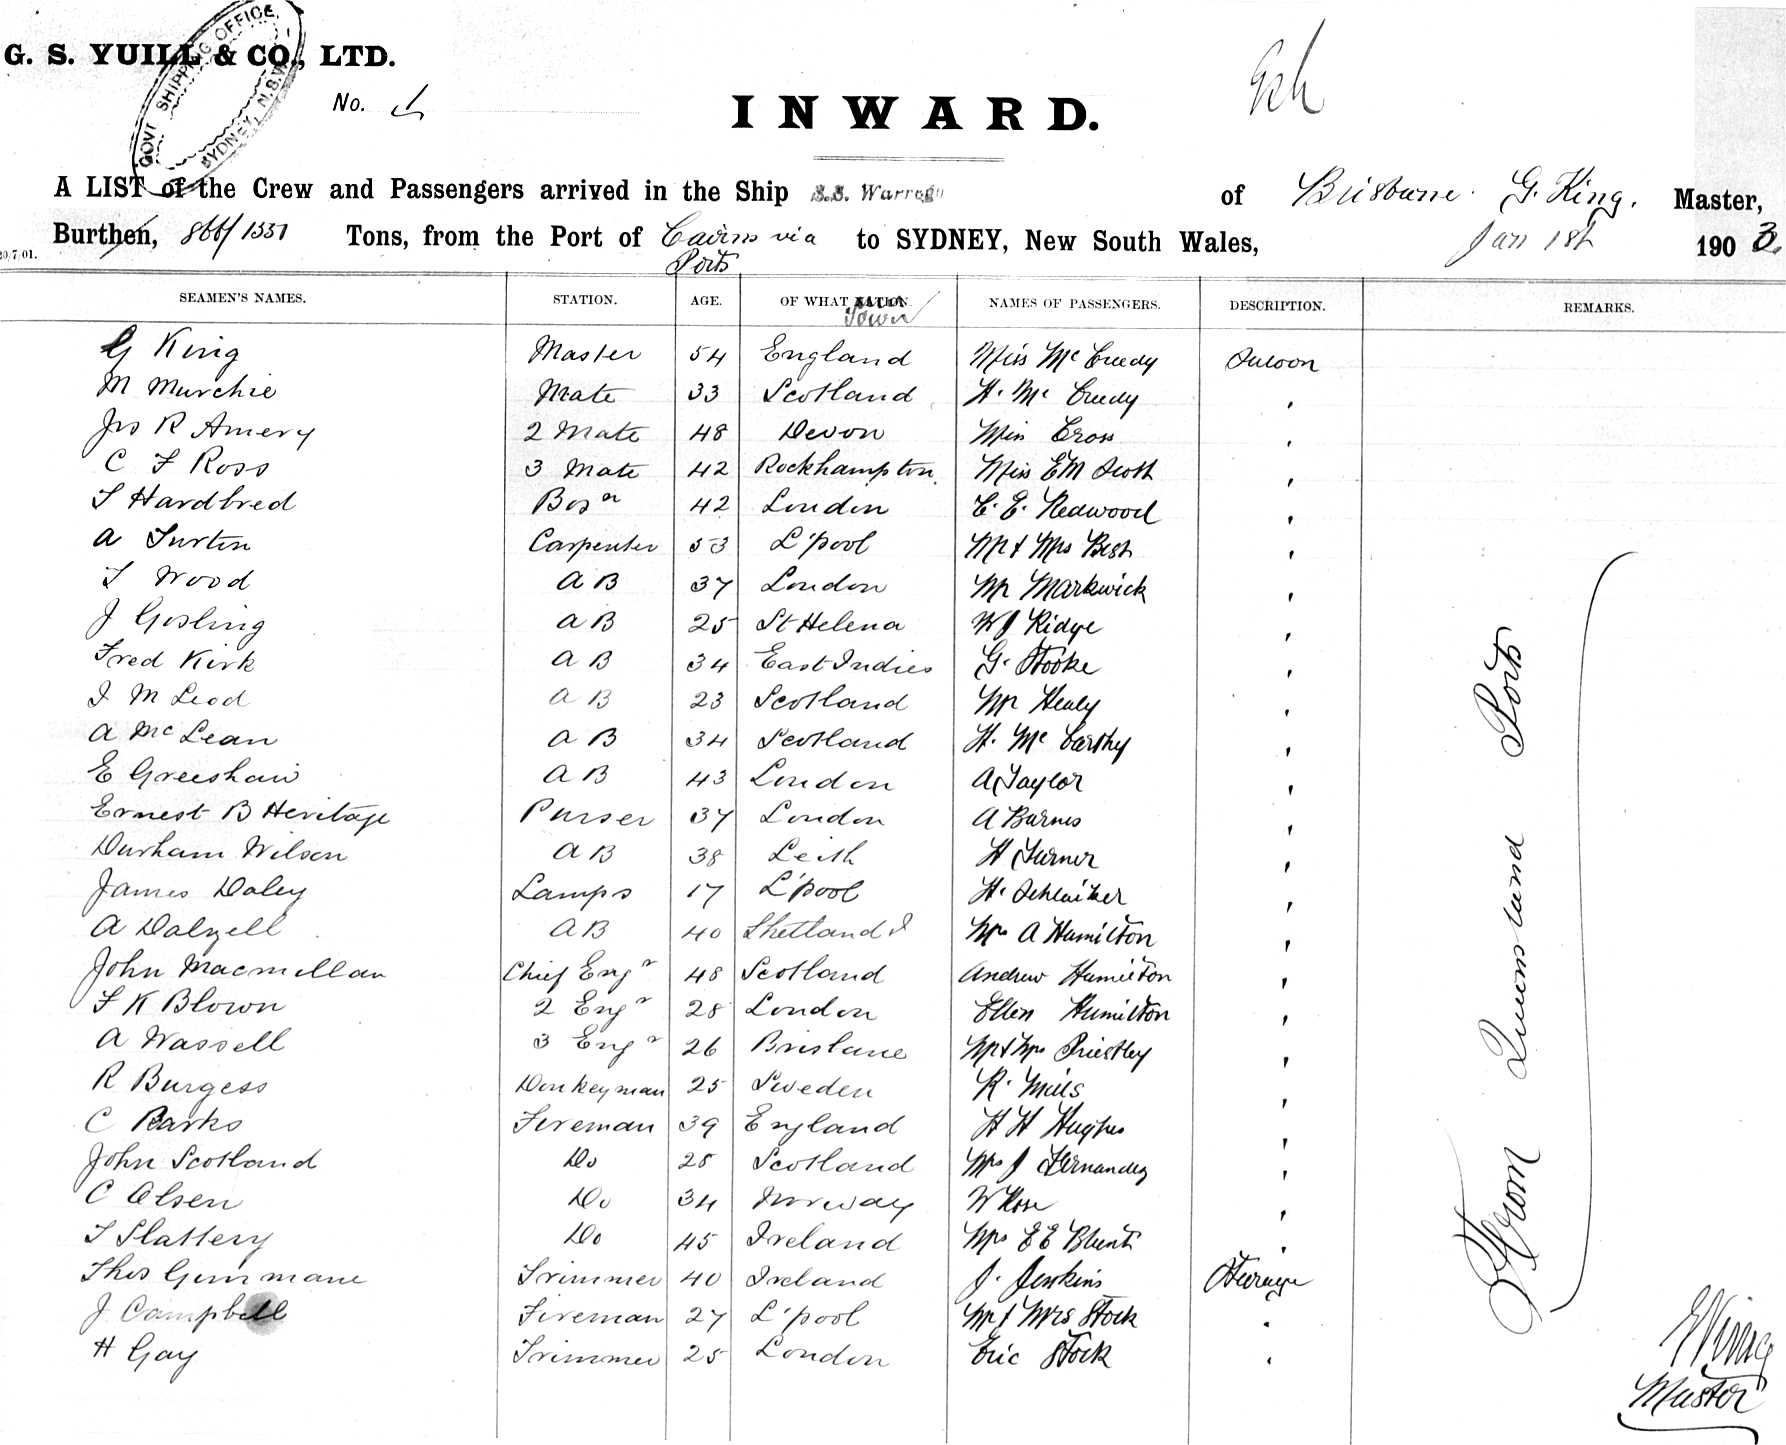 G. S. YUILL & CO., LTD.
GOVT SHIPPING OFFICE, SYDNEY, N.S.W.
No.
INWARD.
A LIST of the Crew and Passengers arrived in the Ship S.S. Warrego of Brisbane. G. King. Master,
Burthen, 866/1551 Tons, from the Port of Cairns via Ports to SYDNEY, New South Wales, Jan 1st 1903.
20/7/01.
SEAMEN'S NAMES. STATION. AGE. OF WHAT Town NAMES OF PASSENGERS. DESCRIPTION. REMARKS.
G King Master 54 England Miss McCreedy Saloon
M Murchie Mate 33 Scotland H. McCreedy "
Jno R Amery 2 Mate 48 Devon Miss Cross "
C F Ross 3 Mate 42 Rockhampton Miss EM Scott "
T Hardbred Bosn 42 London C. E. Redwood "
A Turton Carpenter 53 L'pool Mr & Mrs Best "
T Wood AB 37 London Mr Markwick "
J Gosling AB 25 St Helena WJ Ridge "
Fred Kirk AB 34 East Indies G. Stooke "
J M Leod AB 23 Scotland Mr Healy "
A McLean AB 34 Scotland H. McCarthy "
E Greeshaw AB 43 London A Taylor "
Ernest B Heritage Purser 37 London A Barnes "
Durham Wilson AB 38 Leith H Turner "
James Daley Lamps 17 L'pool H. Schlaiker "
A Dalzell AB 40 Shetland I Mrs A Hamilton "
John Macmillan Chief Engr 48 Scotland Andrew Hamilton "
F K Blown 2 Engr 28 London Ellen Hamilton "
A Wassell 3 Engr 26 Brisbane Mr & Mrs Priestley "
R Burgess Donkeyman 25 Sweden R. Mills "
C Barks Fireman 39 England H H Hughes "
John Scotland Do 28 Scotland Mrs J Fernandez "
C Olsen Do 34 Norway W Rose "
T Slattery Do 45 Ireland Mrs EE Blunt "
Thos Trimmer 40 Ireland J. Jenkins Steerage
J Campbell Fireman 27 L'pool Mr & Mrs Stock "
H Gay Trimmer 25 London Eric Stock "
From Queensland Ports
G King
Master